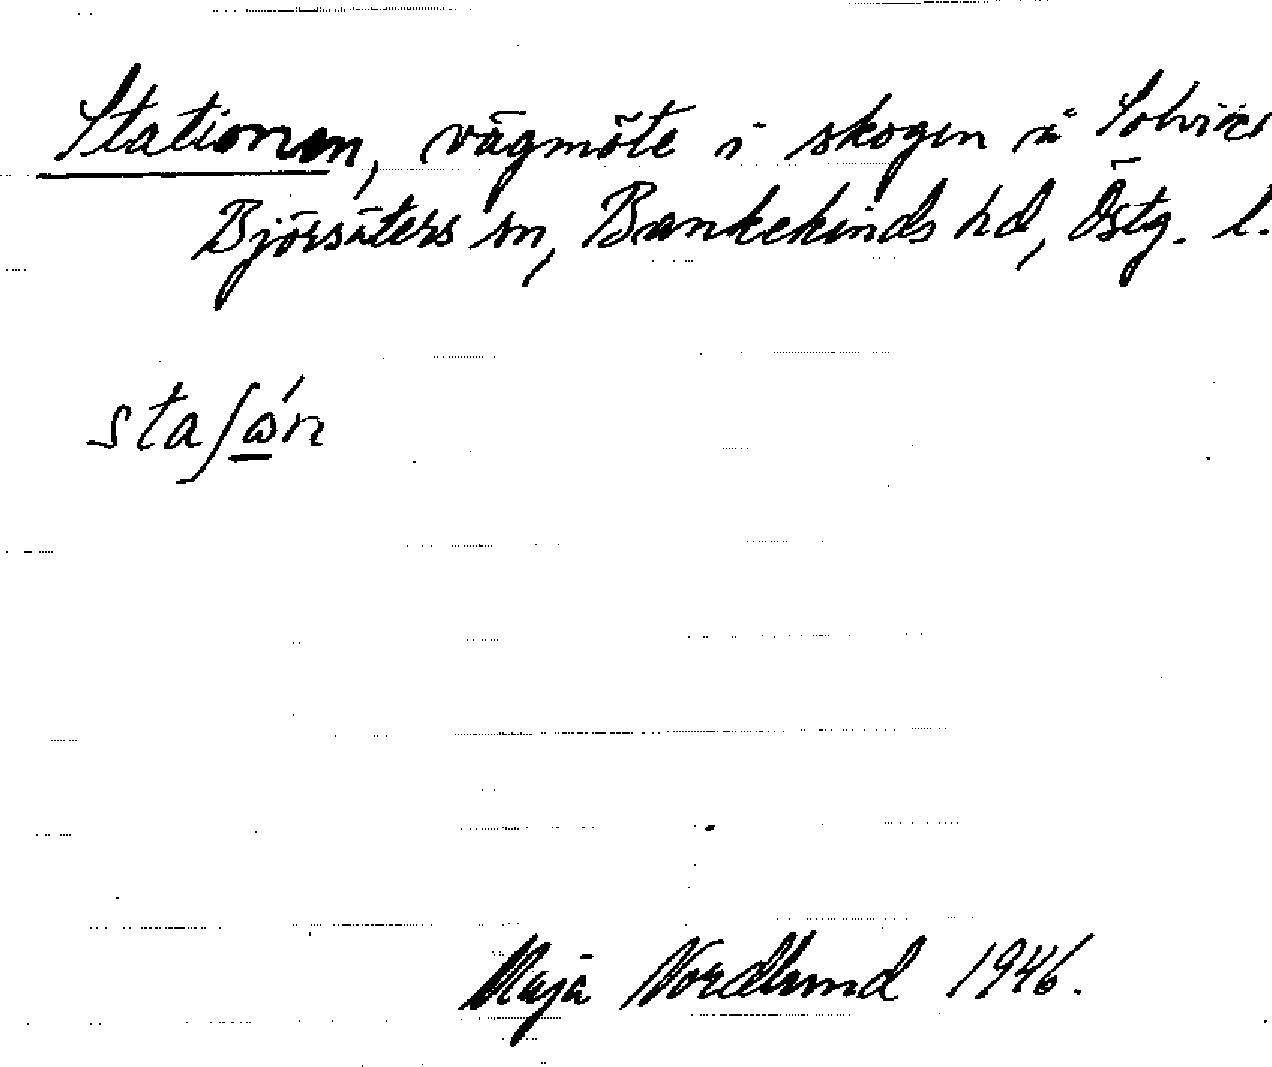 Stationen, vägmöte i skogen å Solvik
Björsäters sn, Bankekinds hd, Östg. l.
staʃώ̲n
Maja Nordlund 1946.